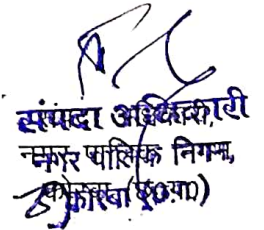 संपदा अधिकारी,
नगर पालिक निगम,
कोरबा (छ.ग.)